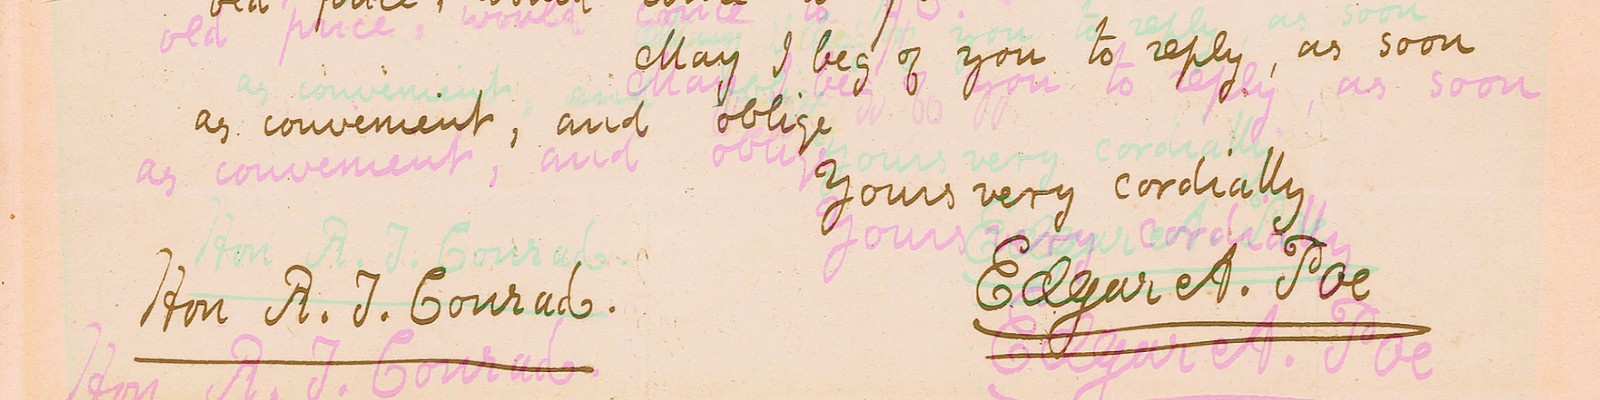 old price, would come to
May I beg of you to reply, as soon
as convenient, and oblige
Yours very cordially
Edgar A. Poe
Hon R. T. Conrad.